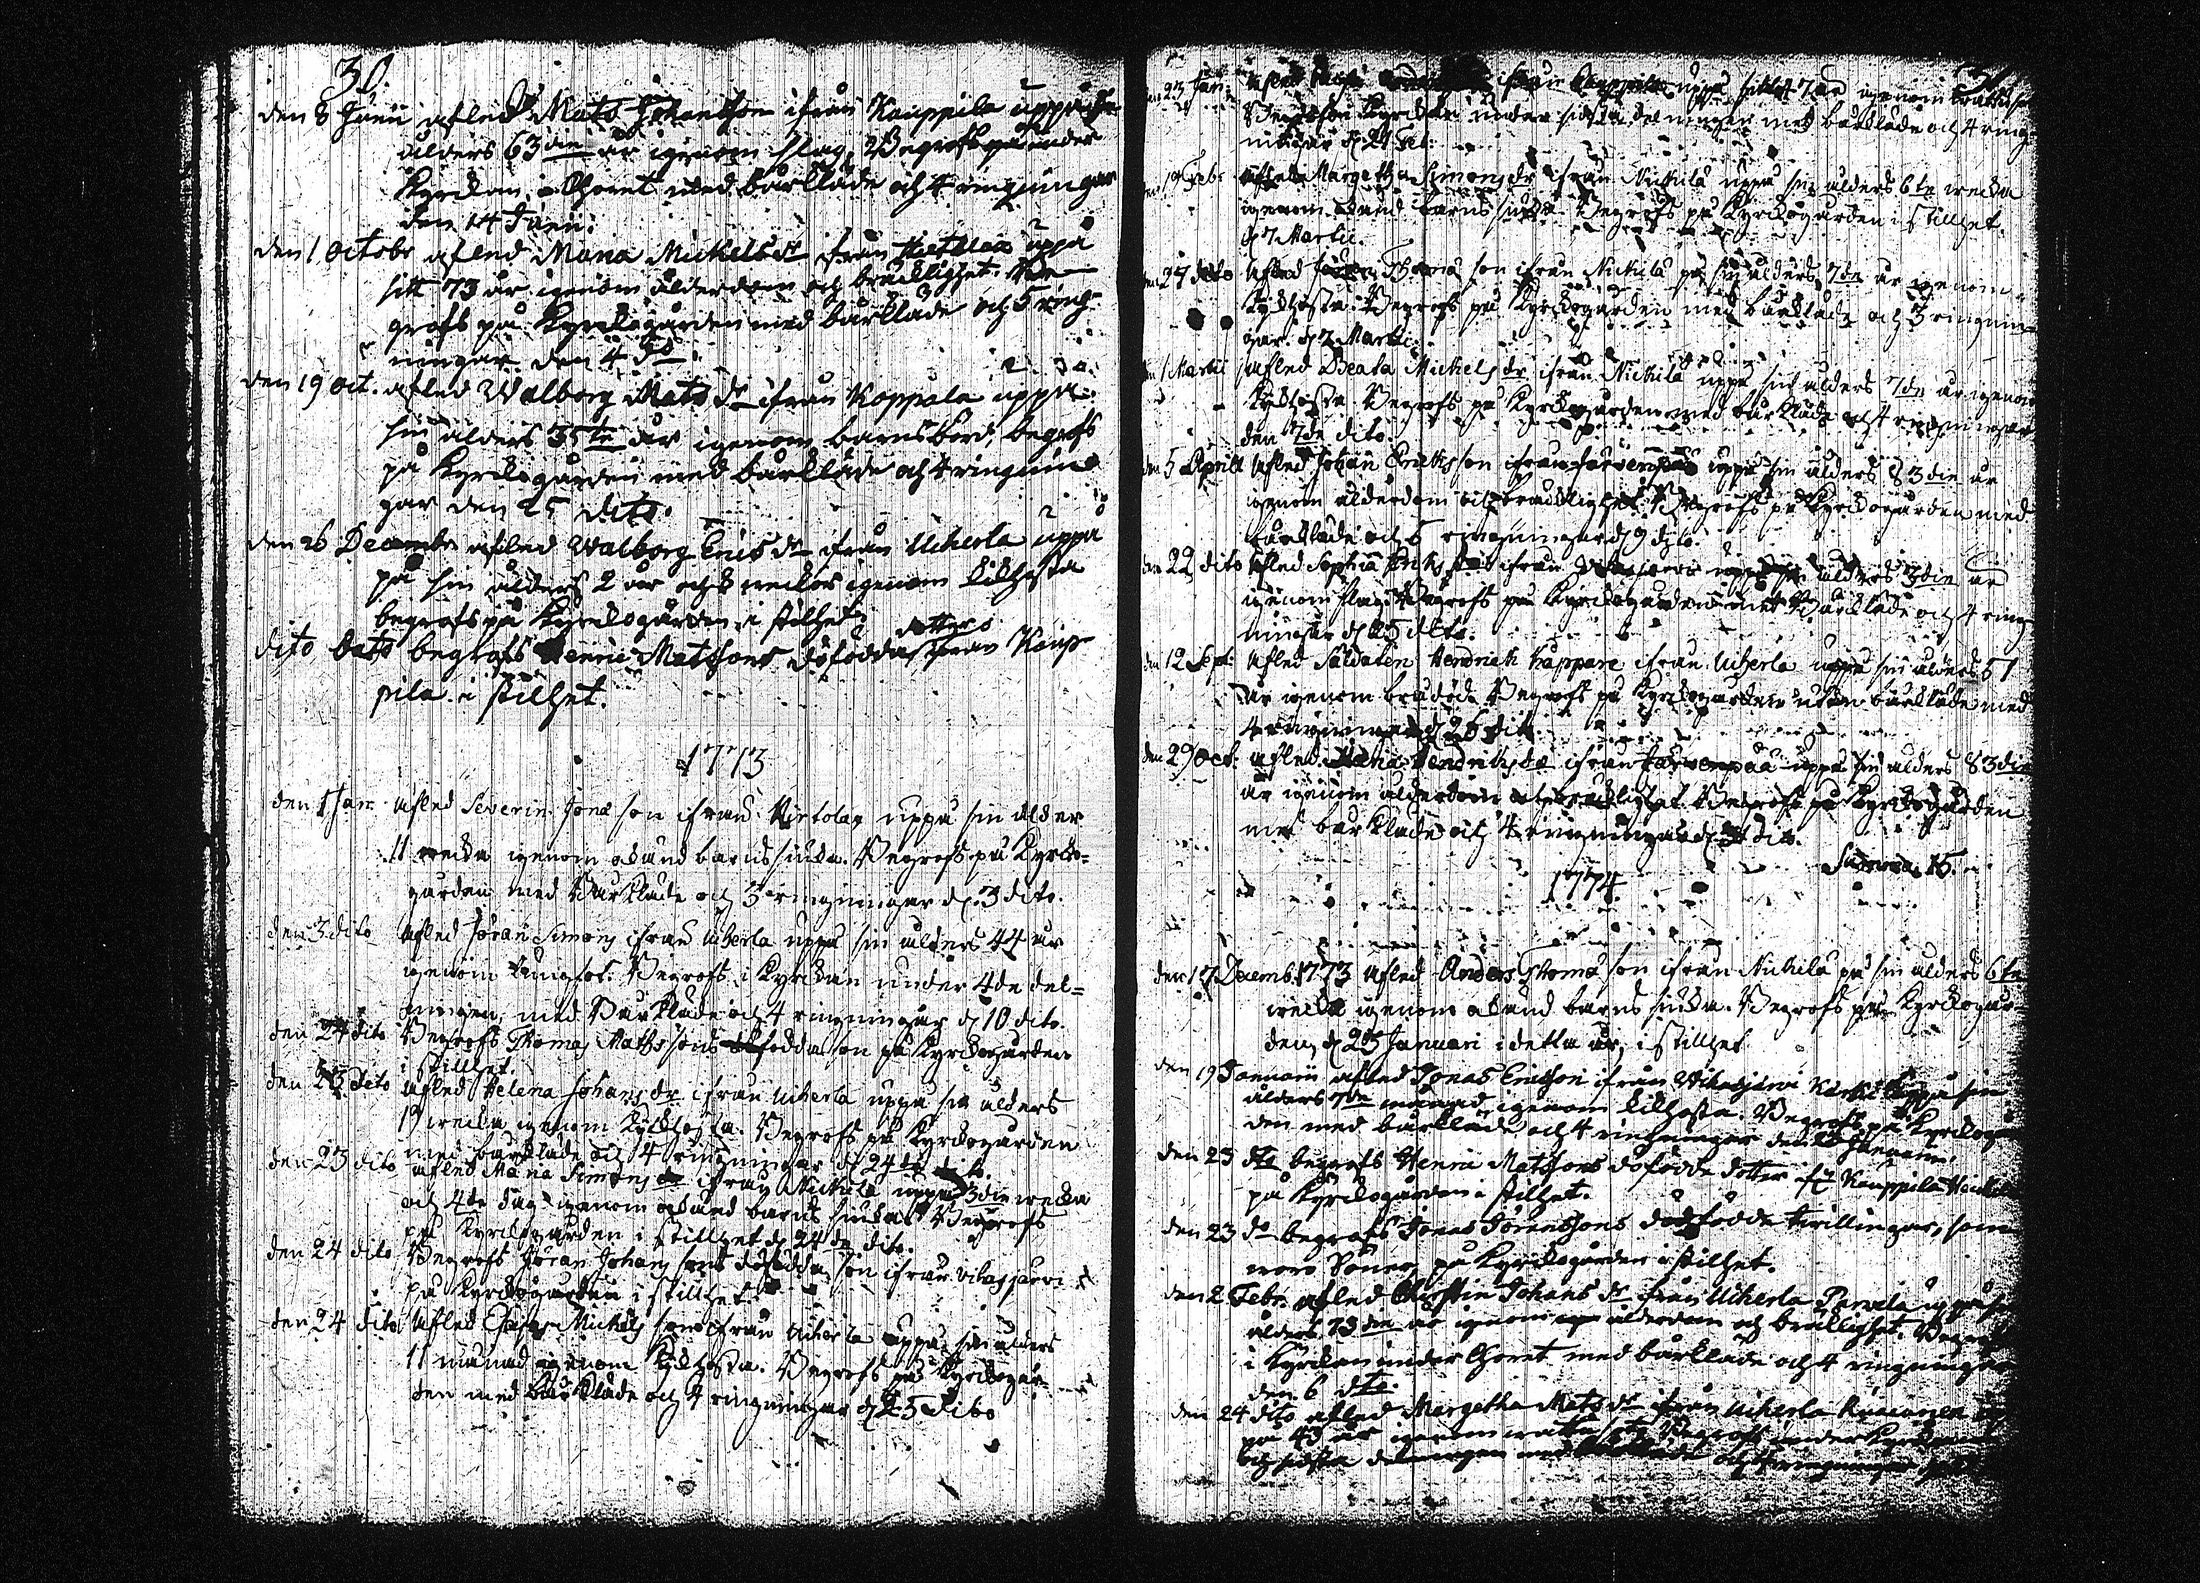 30.
den 8 Junii afled Mats Johansson ifrån Kauppila uppå sin
ålders 63die år igenom slag, Begrofs på under
Kyrckan i Choret med bårkläde och 4 ringningar
den 14 Junii.
den 1 Octobr afled Maria Michelsdr ifrån uppå
sitt 73 år igenom ålderdom och bräcklighet. Be-
grofs på Kyrckogården med bårkläde och 5 ring-
ningar den 4 do.
den 19 Oct. afled Walborg Mats dr ifrån Koppala uppå
sin ålders 35te år igenom barnsbörd, begrofs
på Kyrckogården med bårkläde och 4 ringnin-
gar den 25 dito.
den 26 Decembr afled Walborg Erics dr ifrån Ucherla uppå
på sin ålders 2 år och weckor igenom kikhosta
begrofs på Kyrckogården i stillhet.
dito dato begrofs Henric Matssons döfödda dotter ifrån Kaup
pila i stillhet.
1773
den 1 Jan. afled Severin Jonæ son ifrån Kirtola, uppå sin ålder
11 wecka igenom okänd barnsjuka. Begrofs på Kyrcko-
gården med Bårkläde och 3 ringningar d. 3 dito.
den 3 dito afled Jöran Simons ifrån Ucherla uppå sin ålders 44 år
igenom lungsot. Begrofs i Kyrckan under 4de del-
ningen, med Bårkläde och 4 ringningar d 10 dito.
den 24 dito Begrofs Thomas Mathssons dödfödda son på Kyrckogården
i stillhet.
den 23 dito afled Helena Johans dr ifrån Ucherla uppå sin ålders
19 wecka igenom Kickhosta. Begrofs på Kyrckogården
med bårkläde och 4 ringningar d 24de dito.
den 23 dito afled Maria Simons dr ifrån Nickula uppå 3die wecka
och 4de dag igenom okänd barns siuka. Begrofs
på Kyrckogården i stillhet d 24de dito.
den 24 dito Begrofs Jöran Johans sons döfödda son ifrån Vihajärvi
på Kyrckogården i stillhet.
den 24 dito Afled Esaias Michels son ifrån Ucherla uppå sin ålders
11 månad igenom Kickhosta. Begrofs på Kyrckogår-
den med bårkläde och 4 ringningar d 25 dito
den 23 Jan: afled ifrån Kauppila uppå sitt 7 år igenom
Begrofs i Kyrckan under sidsta delningen med bårkläde och 4 ring
ningar d 21 Feb.
den 19 Feb: afled Margetha Simons dr ifrån Nickula uppå sin ålders 6te wecka
igenom okänd barnsjuka. Begrofs på Kyrckogården i stillhet.
d 7 Martii.
den 27 dito afled Jöran Thomæ son ifrån Nickula på sin ålders 7de år igenom
Kickhosta. Begrofs på Kyrckogården med bårkläde och 3 ringnin-
gar d 7 Martii.
den 1 Martii afled Beata Michels dr ifrån Nickula uppå sin ålders 7de år igenom
Kickhosta. Begrofs på Kyrckogården med bårkläde och 4 ringningar
den 7de dito.
den 5 Aprill afled Johan Ericksson ifrån Järvenpää uppå sin ålders 83die år
igenom ålderdom och bräcklighet. Begrofs på Kyrckogården med
bårkläde och 5 ringningar d 9 dito.
den 22 dito afled Sophia Ericks dr ifrån uppå sin ålders 3die år
igenom slag. Begrofs på Kyrckogården med Bårkläde och 4 ring
ningar d 25 dito.
den 12 Sept: Afled Soldaten Hendrich Kappare ifrån Ucherla uppå sin ålders 51
år igenom brådöd. Begrofs på Kyrckogården utan bårkläde med
4 ringningar d 26 dito.
den 29 Oct: afled Maria Hendrichs dr ifrån Järvenpää uppå sin ålders 83die
år igenom ålderdom och bräcklighet. Begrofs på Kyrckogården
med bårkläde och 4 ringningar d dito.
Summa 15.
1774
den 17 Decemb: 1773 afled Anders Thomæ son ifrån Nickula på sin ålders 6te
wecka igenom okänd barns siuka. Begrofs på Kyrckogår
den, d 23 Januari i detta år, i stillhet
den 19 Januarii afled Jonas Ericsson ifrån Vihajärvi uppå sin
ålders 7de månad igenom kikhosta. Begrofs på Kyrckogår
den med bårkläde och 4 ringningar den Januarii.
den 23 dto begrofs Henric Matssons döfödde dotter ifr Kauppila
på Kyrckogården i stillhet.
den 23 do begrafs Jonas Jöranssons dödfödde twillingar, som
woro Söner på Kyrckogården i stillhet.
den 2 Febr. afled Christin Johans dr ifrån Ucherla uppå sin
ålders 73die år igenom ålderdom och bräcklighet. Begrofs
i Kyrckan under Choret med bårkläde och 4 ringningar
den 6 dto.
den 24 dito afled Margetha Mats dr ifrån Ucherla
på 43 år igenom Begrofs under Kyrckan
och sidsta delningen med bårkläde och 4 ringningar